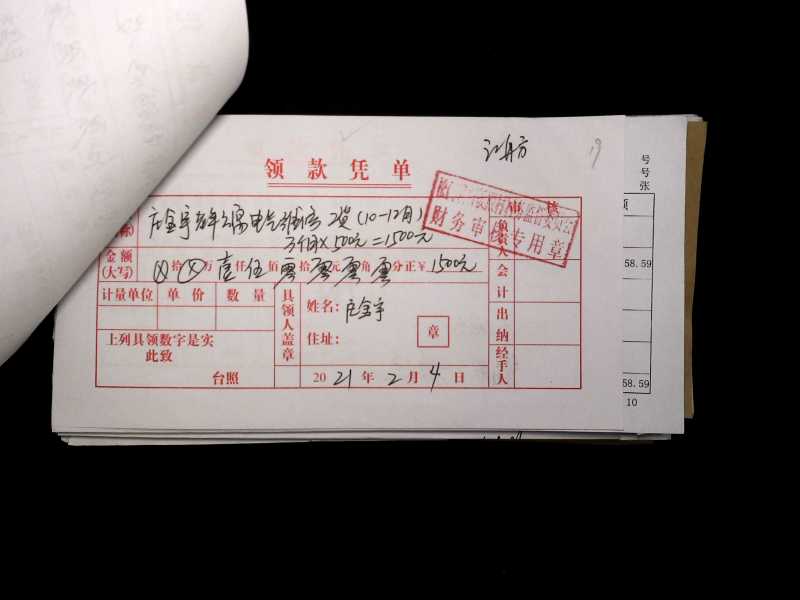 19
领款凭单
号
号
张
庄金宇 电 工资(10-12月)
3个月×500元=1500元
财务审核专用章
金额
(大写)
⊗拾⊗万壹仟伍佰零拾零元零角零分正¥1500元
58.59
计量单位 单价 数量
具领人盖章
姓名:庄金宇
住址:
章
会计
出纳
经手人
上列具领数字是实
此致
台照
2021年2月4日
58.59
10